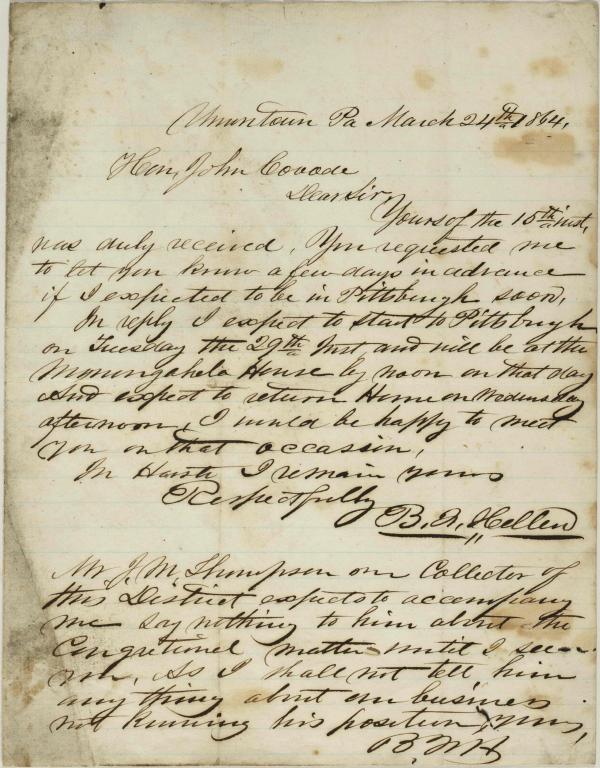 Uniontown Pa March 24th 1864,
Hon, John Covode
Dear Sir,
Yours of the 15th inst,
was duly received, You requested me
to let you know a few days in advance
if I expected to be in Pittburgh soon,
In reply I expect to start to Pittburgh
on Tuesday the 29th Inst and will be at the
Monongahela House by noon on that day
And expect to return Home on Wednesday
afternoon, I would be happy to meet
you on that occassion,
In Haste I remain yours
Respectfully
B. Hellen
Mr J, M Thompson our Collector of
this District expects to accompany
me say nothing to him about the
Congretional matter until I see
you, As I shall not tell him
any thing about our business
not knowing his position, yours,